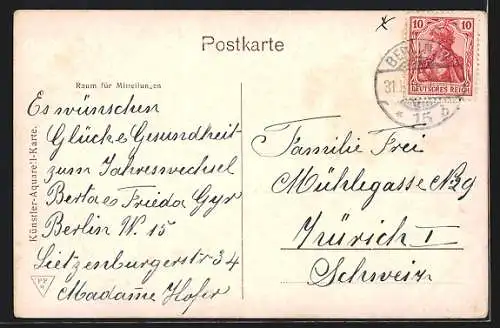 Postkarte
Raum für Mitteilungen
Es wünschen
Glück e Gesundheit
zum Jahreswechsel
Berta e Frieda Gyr
Berlin W. 15
Lietzenburgerstr 34
Madame Hofer
Künstler-Aquarell-Karte.
10 10
DEUTSCHES REICH
BERLIN
31.
* 15 b
Familie Frei
Mühlegasse No 29
Zürich I
Schweiz